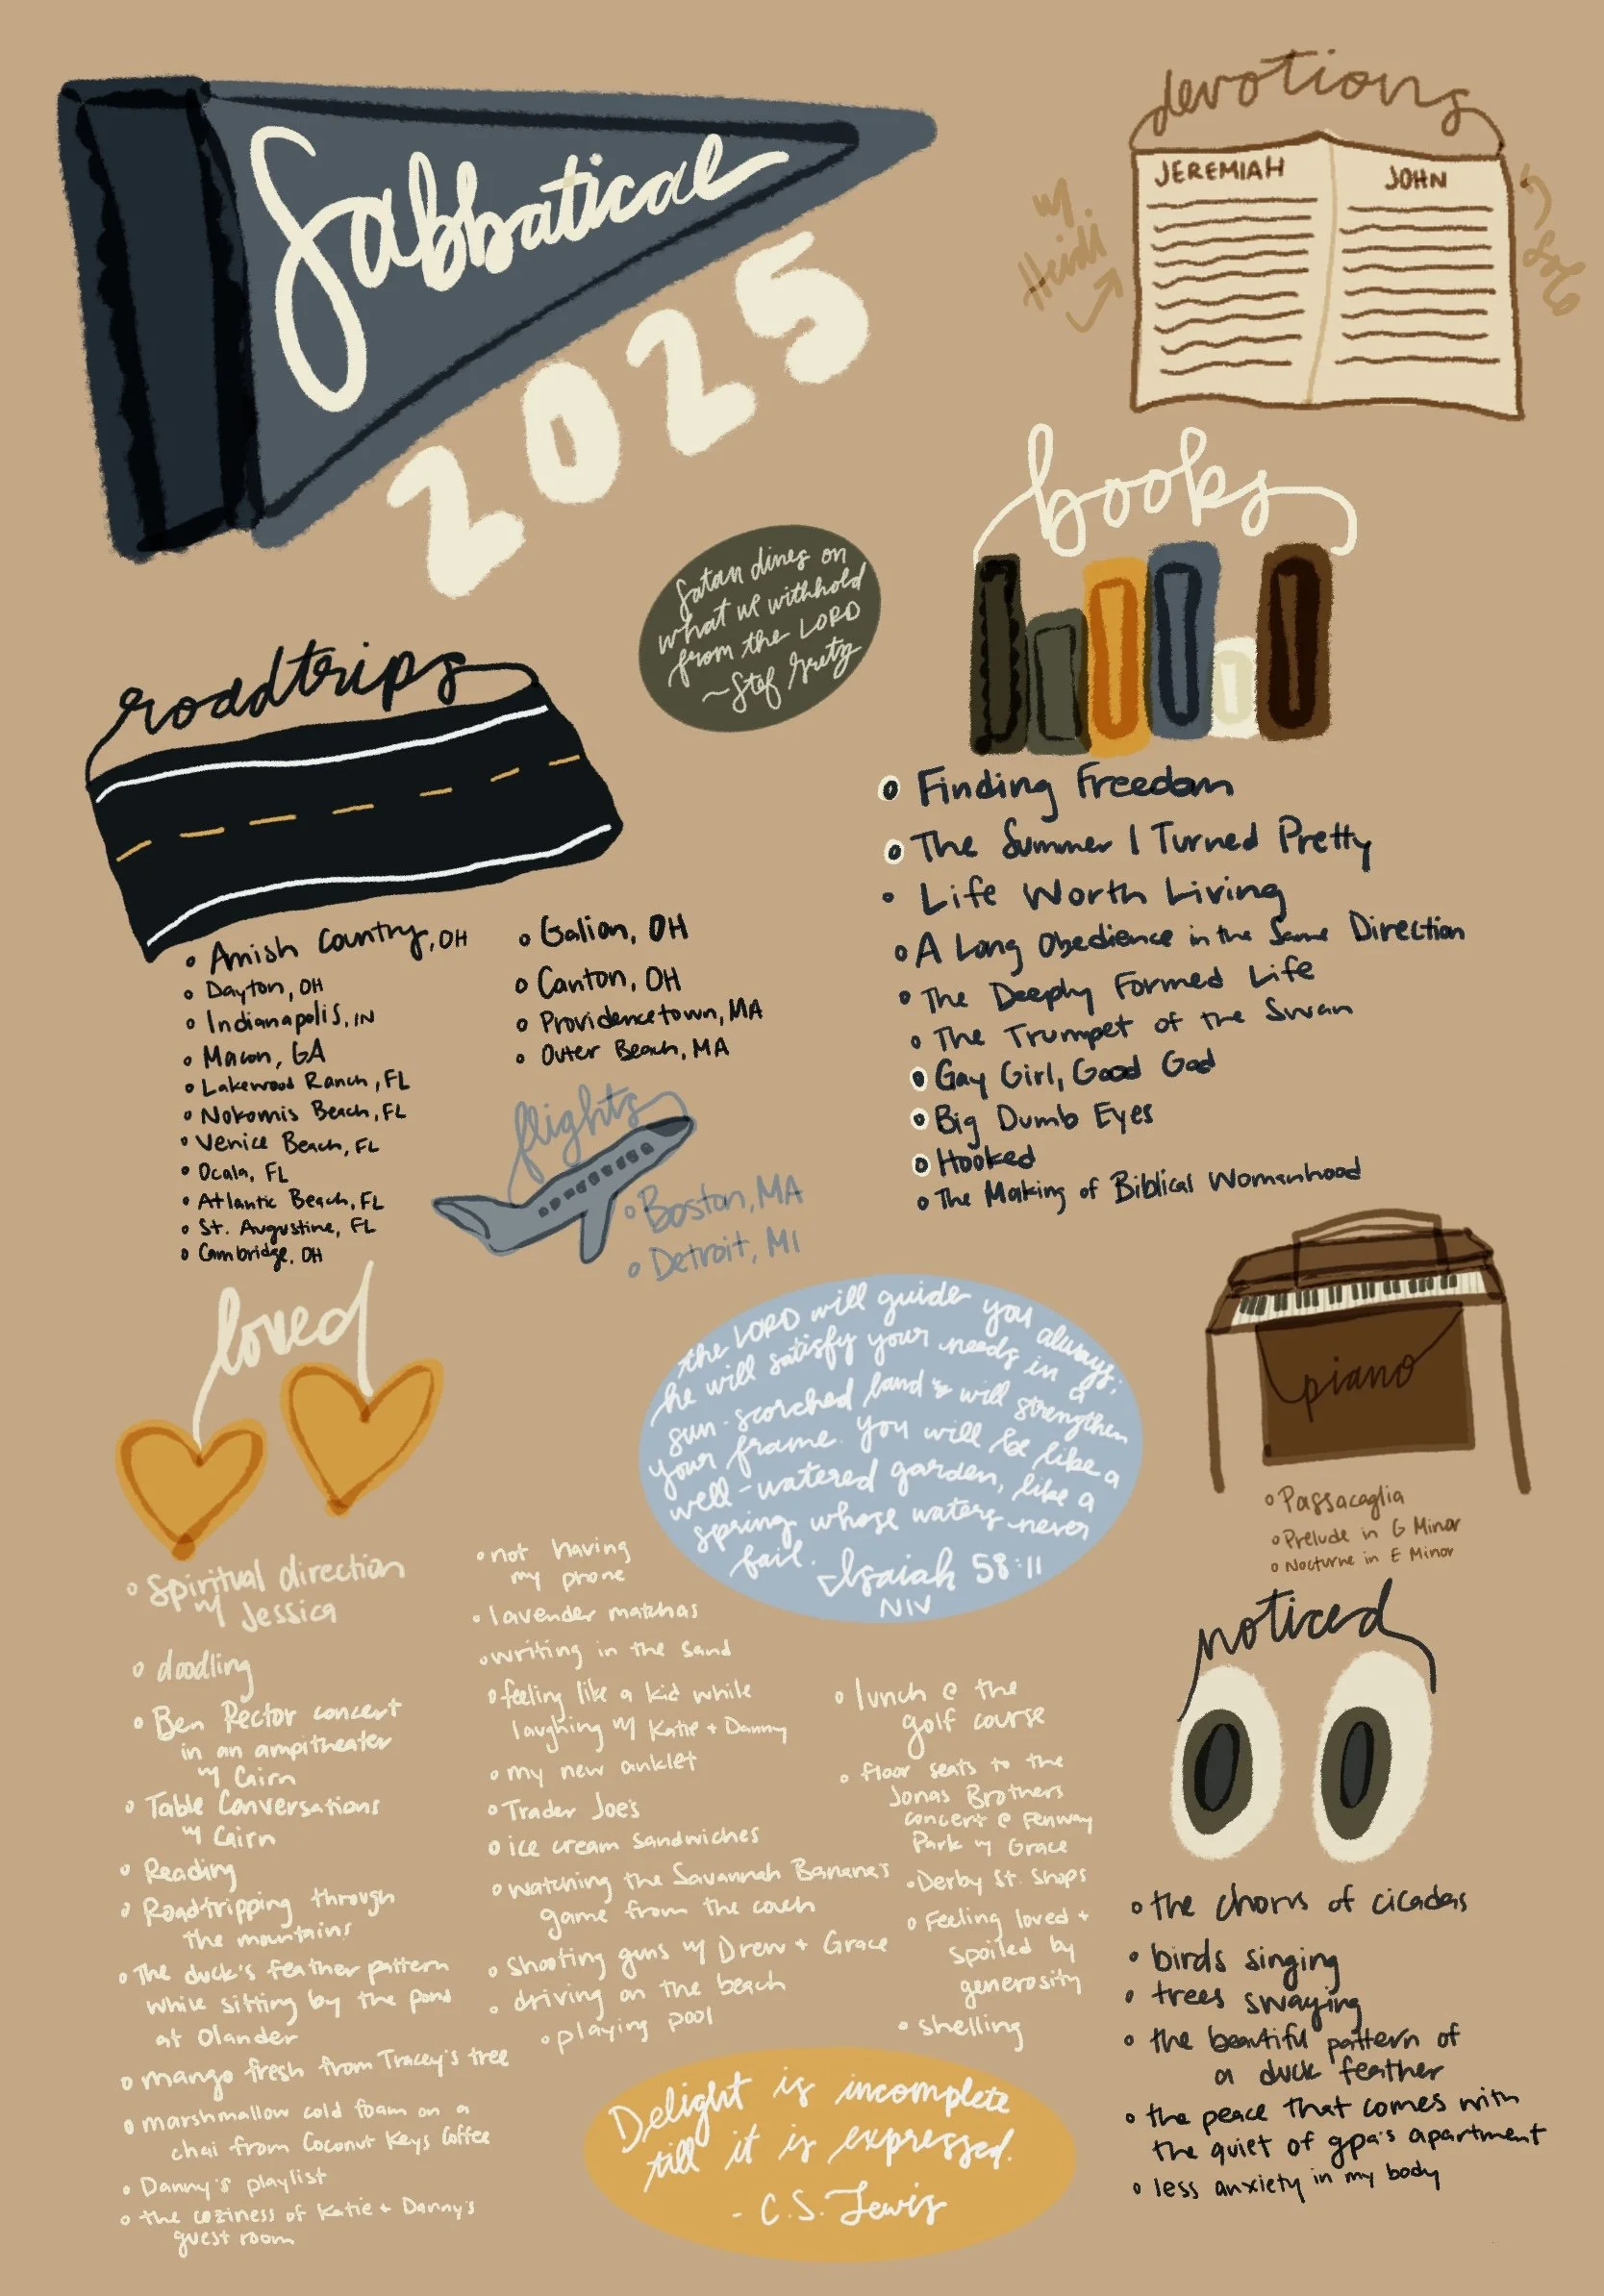 Sabbatical
2025
devotions
JEREMIAH
JOHN
w/
Heidi
solo
books
Satan dines on
what we withhold
from the LORD
~Stef Gretz
roadtrips
• Amish Country, OH
• Dayton, OH
• Indianapolis, IN
• Macon, GA
• Lakewood Ranch, FL
• Nokomis Beach, FL
• Venice Beach, FL
• Ocala, FL
• Atlantic Beach, FL
• St. Augustine, FL
• Cambridge, OH
• Galion, OH
• Canton, OH
• Providencetown, MA
• Outer Beach, MA
• Finding Freedom
• The Summer I Turned Pretty
• Life Worth Living
• A Long Obedience in the Same Direction
• The Deeply Formed Life
• The Trumpet of the Swan
• Gay Girl, Good God
• Big Dumb Eyes
• Hooked
• The Making of Biblical Womanhood
flights
• Boston, MA
• Detroit, MI
loved
the LORD will guide you always;
he will satisfy your needs in a
sun-scorched land & will strengthen
your frame. You will be like a
well-watered garden, like a
spring whose waters never
fail. -Isaiah 58:11
NIV
piano
• Passacaglia
• Prelude in G Minor
• Nocturne in E Minor
• Spiritual direction
w/ Jessica
• doodling
• Ben Rector concert
in an ampitheater
w/ Cairn
• Table Conversations
w/ Cairn
• Reading
• Roadtripping through
the mountains
• The duck's feather pattern
while sitting by the pond
at Olander
• mango fresh from Tracey's tree
• marshmallow cold foam on a
chai from Coconut Keys Coffee
• Danny's playlist
• the coziness of Katie + Danny's
guest room
• not having
my phone
• lavender matchas
• writing in the sand
• feeling like a kid while
laughing w/ Katie + Danny
• my new anklet
• Trader Joe's
• ice cream sandwiches
• watching the Savannah Banana's
game from the couch
• Shooting guns w/ Drew + Grace
• driving on the beach
• playing pool
• lunch @ the
golf course
• floor seats to the
Jonas Brothers
concert @ Fenway
Park w/ Grace
• Derby St. Shops
• Feeling loved +
spoiled by
generosity
• shelling
noticed
• the chorus of cicadas
• birds singing
• trees swaying
• the beautiful pattern of
a duck feather
• the peace that comes with
the quiet of gpa's apartment
• less anxiety in my body
Delight is incomplete
till it is expressed.
- C.S. Lewis